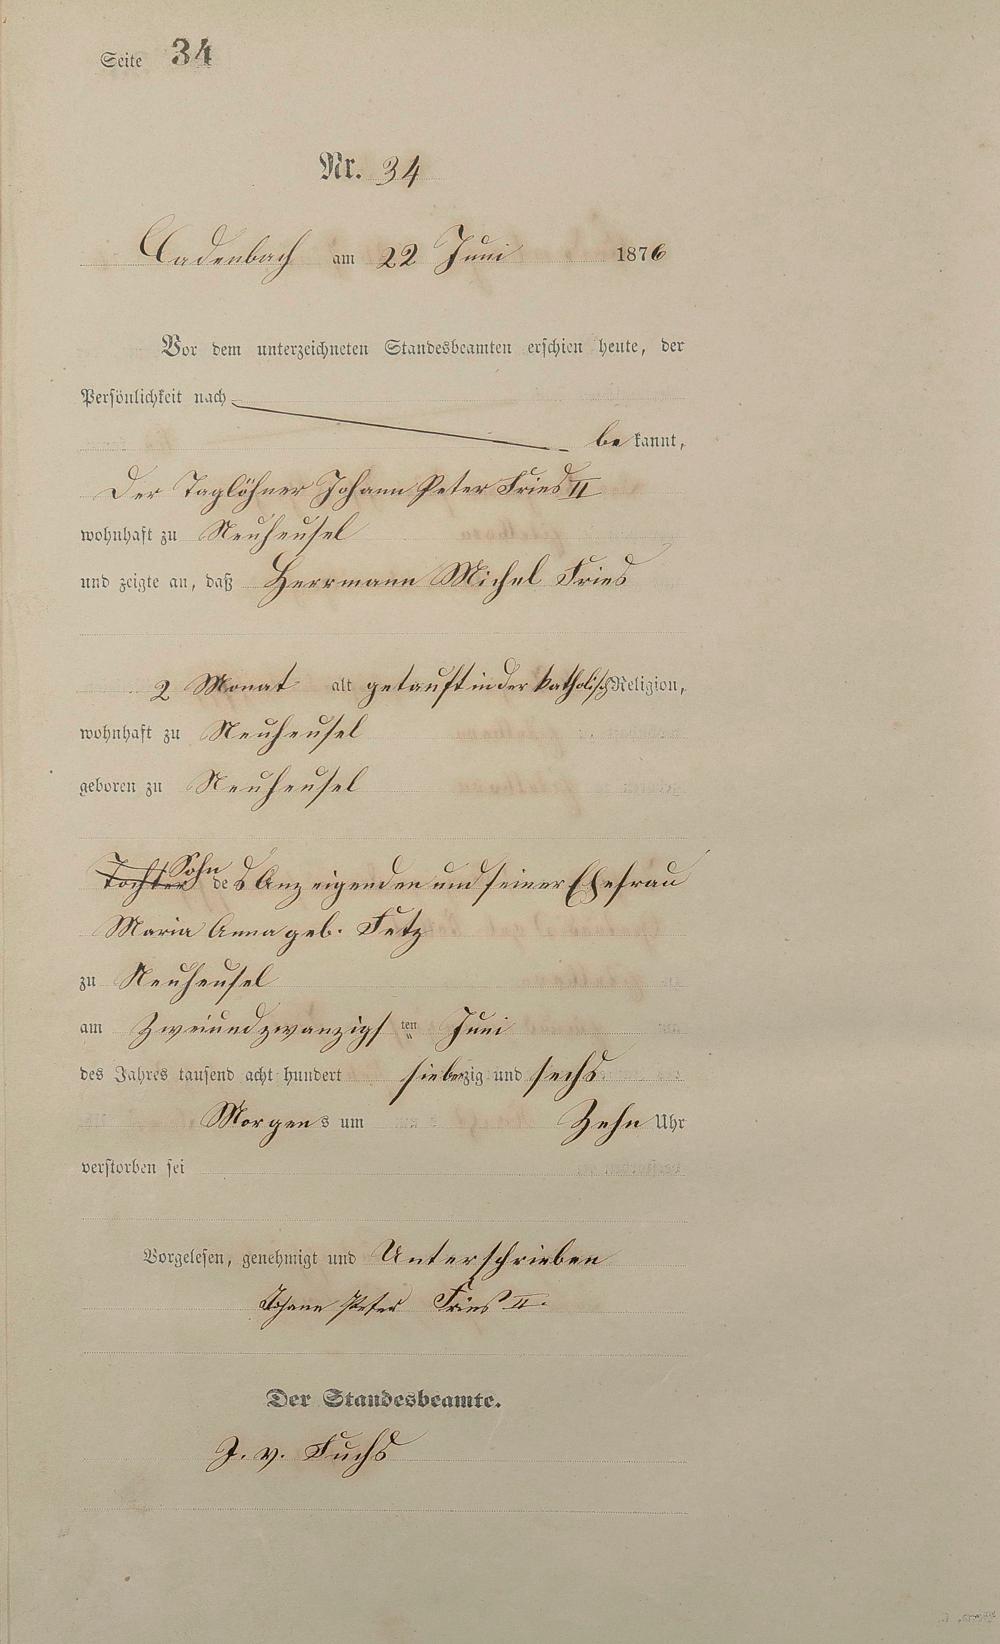 Seite 34
Nr. 34
Cadenbach am 22 Juni 1876
Vor dem unterzeichneten Standesbeamten erschien heute, der
Persönlichkeit nach
bekannt,
Der Taglöhner Johann Peter Fries II
wohnhaft zu Neuheusel
und zeigte an, daß Herrmann Michel Fries
2 Monat alt getauft in der katholisch Religion,
wohnhaft zu Neuheusel
geboren zu Neuheusel
Tochter Sohn des Anzeigenden und seiner Ehefrau
Maria Anna geb. Fetz
zu Neuheusel
am Zweiundzwanzigsten Juni
des Jahres tausend acht hundert siebenzig und sechs
Morgens um Zehn Uhr
verstorben sei
Vorgelesen, genehmigt und Unterschrieben
Johann Peter Fries II.
Der Standesbeamte.
J. v. Fuchs